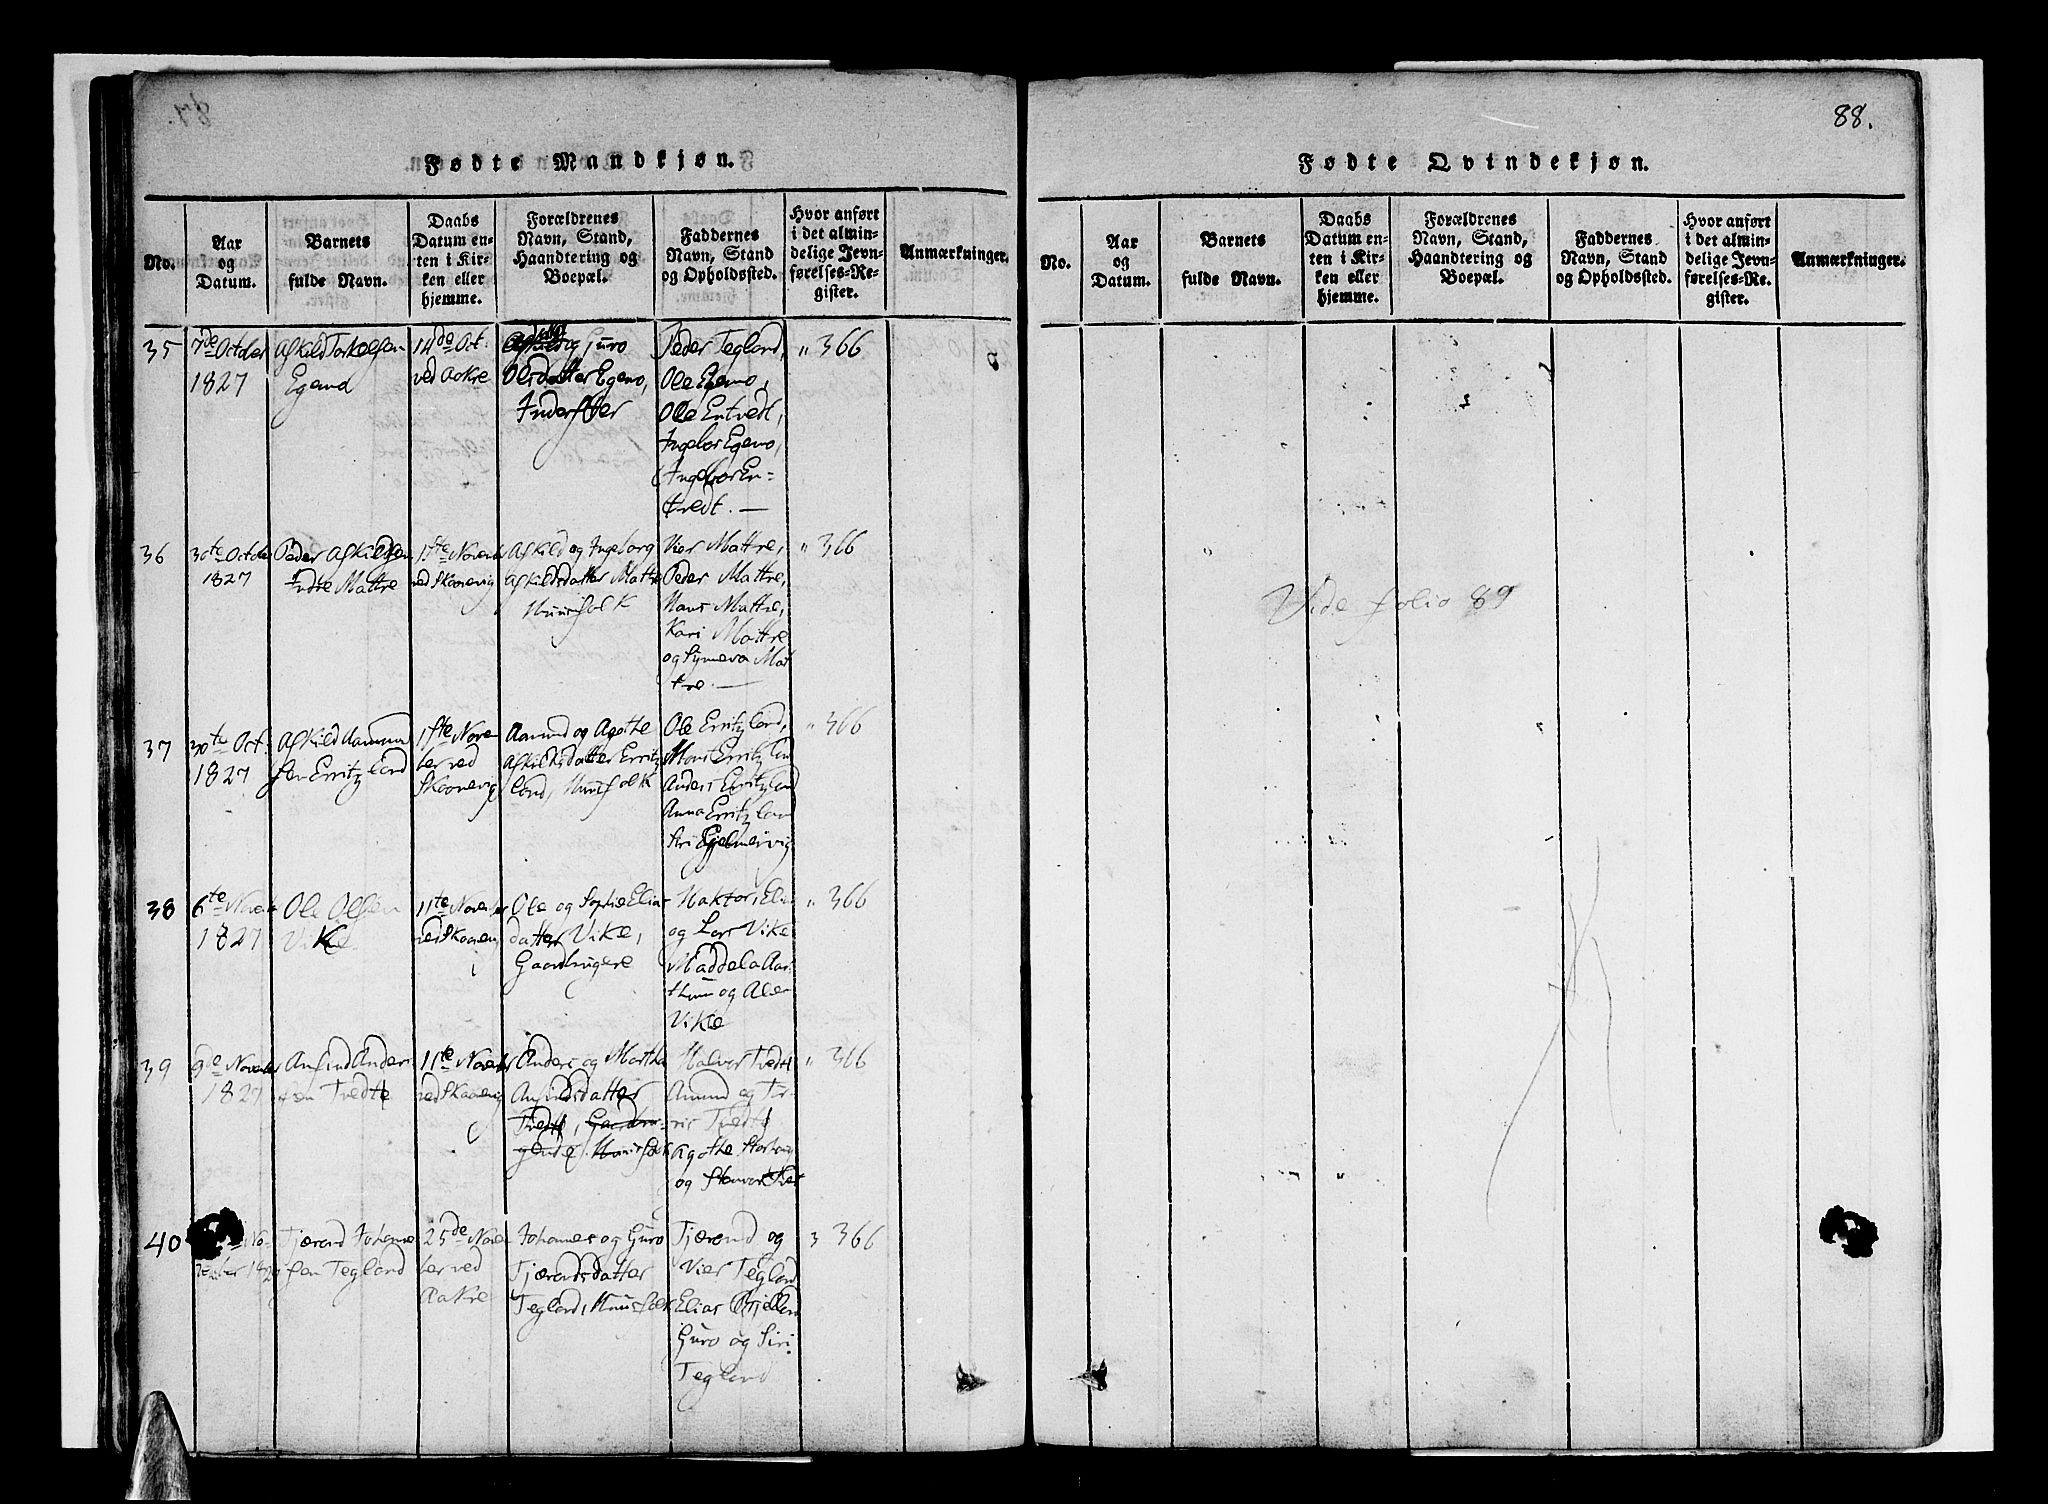 88.
Fødte Mandkjøn.
No.
Aar
og
Datum.
Barnets
fulde Navn.
Daabs
Datum en-
ten i Kir-
ken eller
hjemme.
Forældrenes
Navn, Stand,
Haandtering og
Boepæl.
Faddernes
Navn, Stand
og Opholdssted.
Hvor anført
i det almin-
delige Jevn-
førelses-Re-
gister.
Anmærkninger.
35
7de October
1827
Askild Torkelsen
Egemo
14de Oct.
ved Aakre
og Guro
Olsdatter Egemo,
Inderster
Peder Tegland,
Ole Egemo,
Ole Entvedt,
Ingebor Egemo,
Ingebor En-
tvedt. —
" 366
36
30te Octobr
1827
Peder Askildsen
Mattre
ved Skaanevig
Askild og Ingeborg
Askildsdatter Mattre
Huusfolk
Vier Mattre,
Peder Mattre,
Hans Mattre,
Kari Mattre
og Synneva Mat
tre. —
" 366
37
30te Oct.
1827
Askild Aamund
sen Erritzland
1ste Novem
ber ved
Skaanevig
Aamund og Agothe
Askildsdatter Erritz
land, Huusfolk
Ole Erritzland,
Mons Erritzlan
Anders Erritzland
Anna Erritzlan
Siri
" 366
38
6te Novemb
1827
Ole Olsen
Vike
11te November
ved Skaanev
i
Ole og Sophie Elias
datter Vike,
Gaardbrugere
og Lars Vike
og
Vike
" 366
39
9de November
1827
Anfind Anders
sen Tvedte
11te November
ved Skaanevig
Anders og Martha
Anfindsdatter
Tvedte, Gaardbru-
gende. Huusfolk
Halvor Tvedte
Amund og Tor-
ris Tvedte
Agothe
og
" 366
40
No-
vember 1827
Tjærand Johanne
sen Tegland
25de Novem
ber ved
Aakre
Johannes og Guro
Tjærandsdatter
Tegland, Huusfolk
Tjærand og
Vier Tegland
Elias
Guro og Siri
Tegland
366
Fødte Qvindekjøn.
No.
Aar
og
Datum.
Barnets
fulde Navn.
Daabs
Datum en-
ten i Kir-
ken eller
hjemme.
Forældrenes
Navn, Stand,
Haandtering og
Boepæl.
Faddernes
Navn, Stand
og Opholdssted.
Hvor anført
i det almin-
delige Jevn-
førelses-Re-
gister.
Anmærkninger.
Vide folio 89